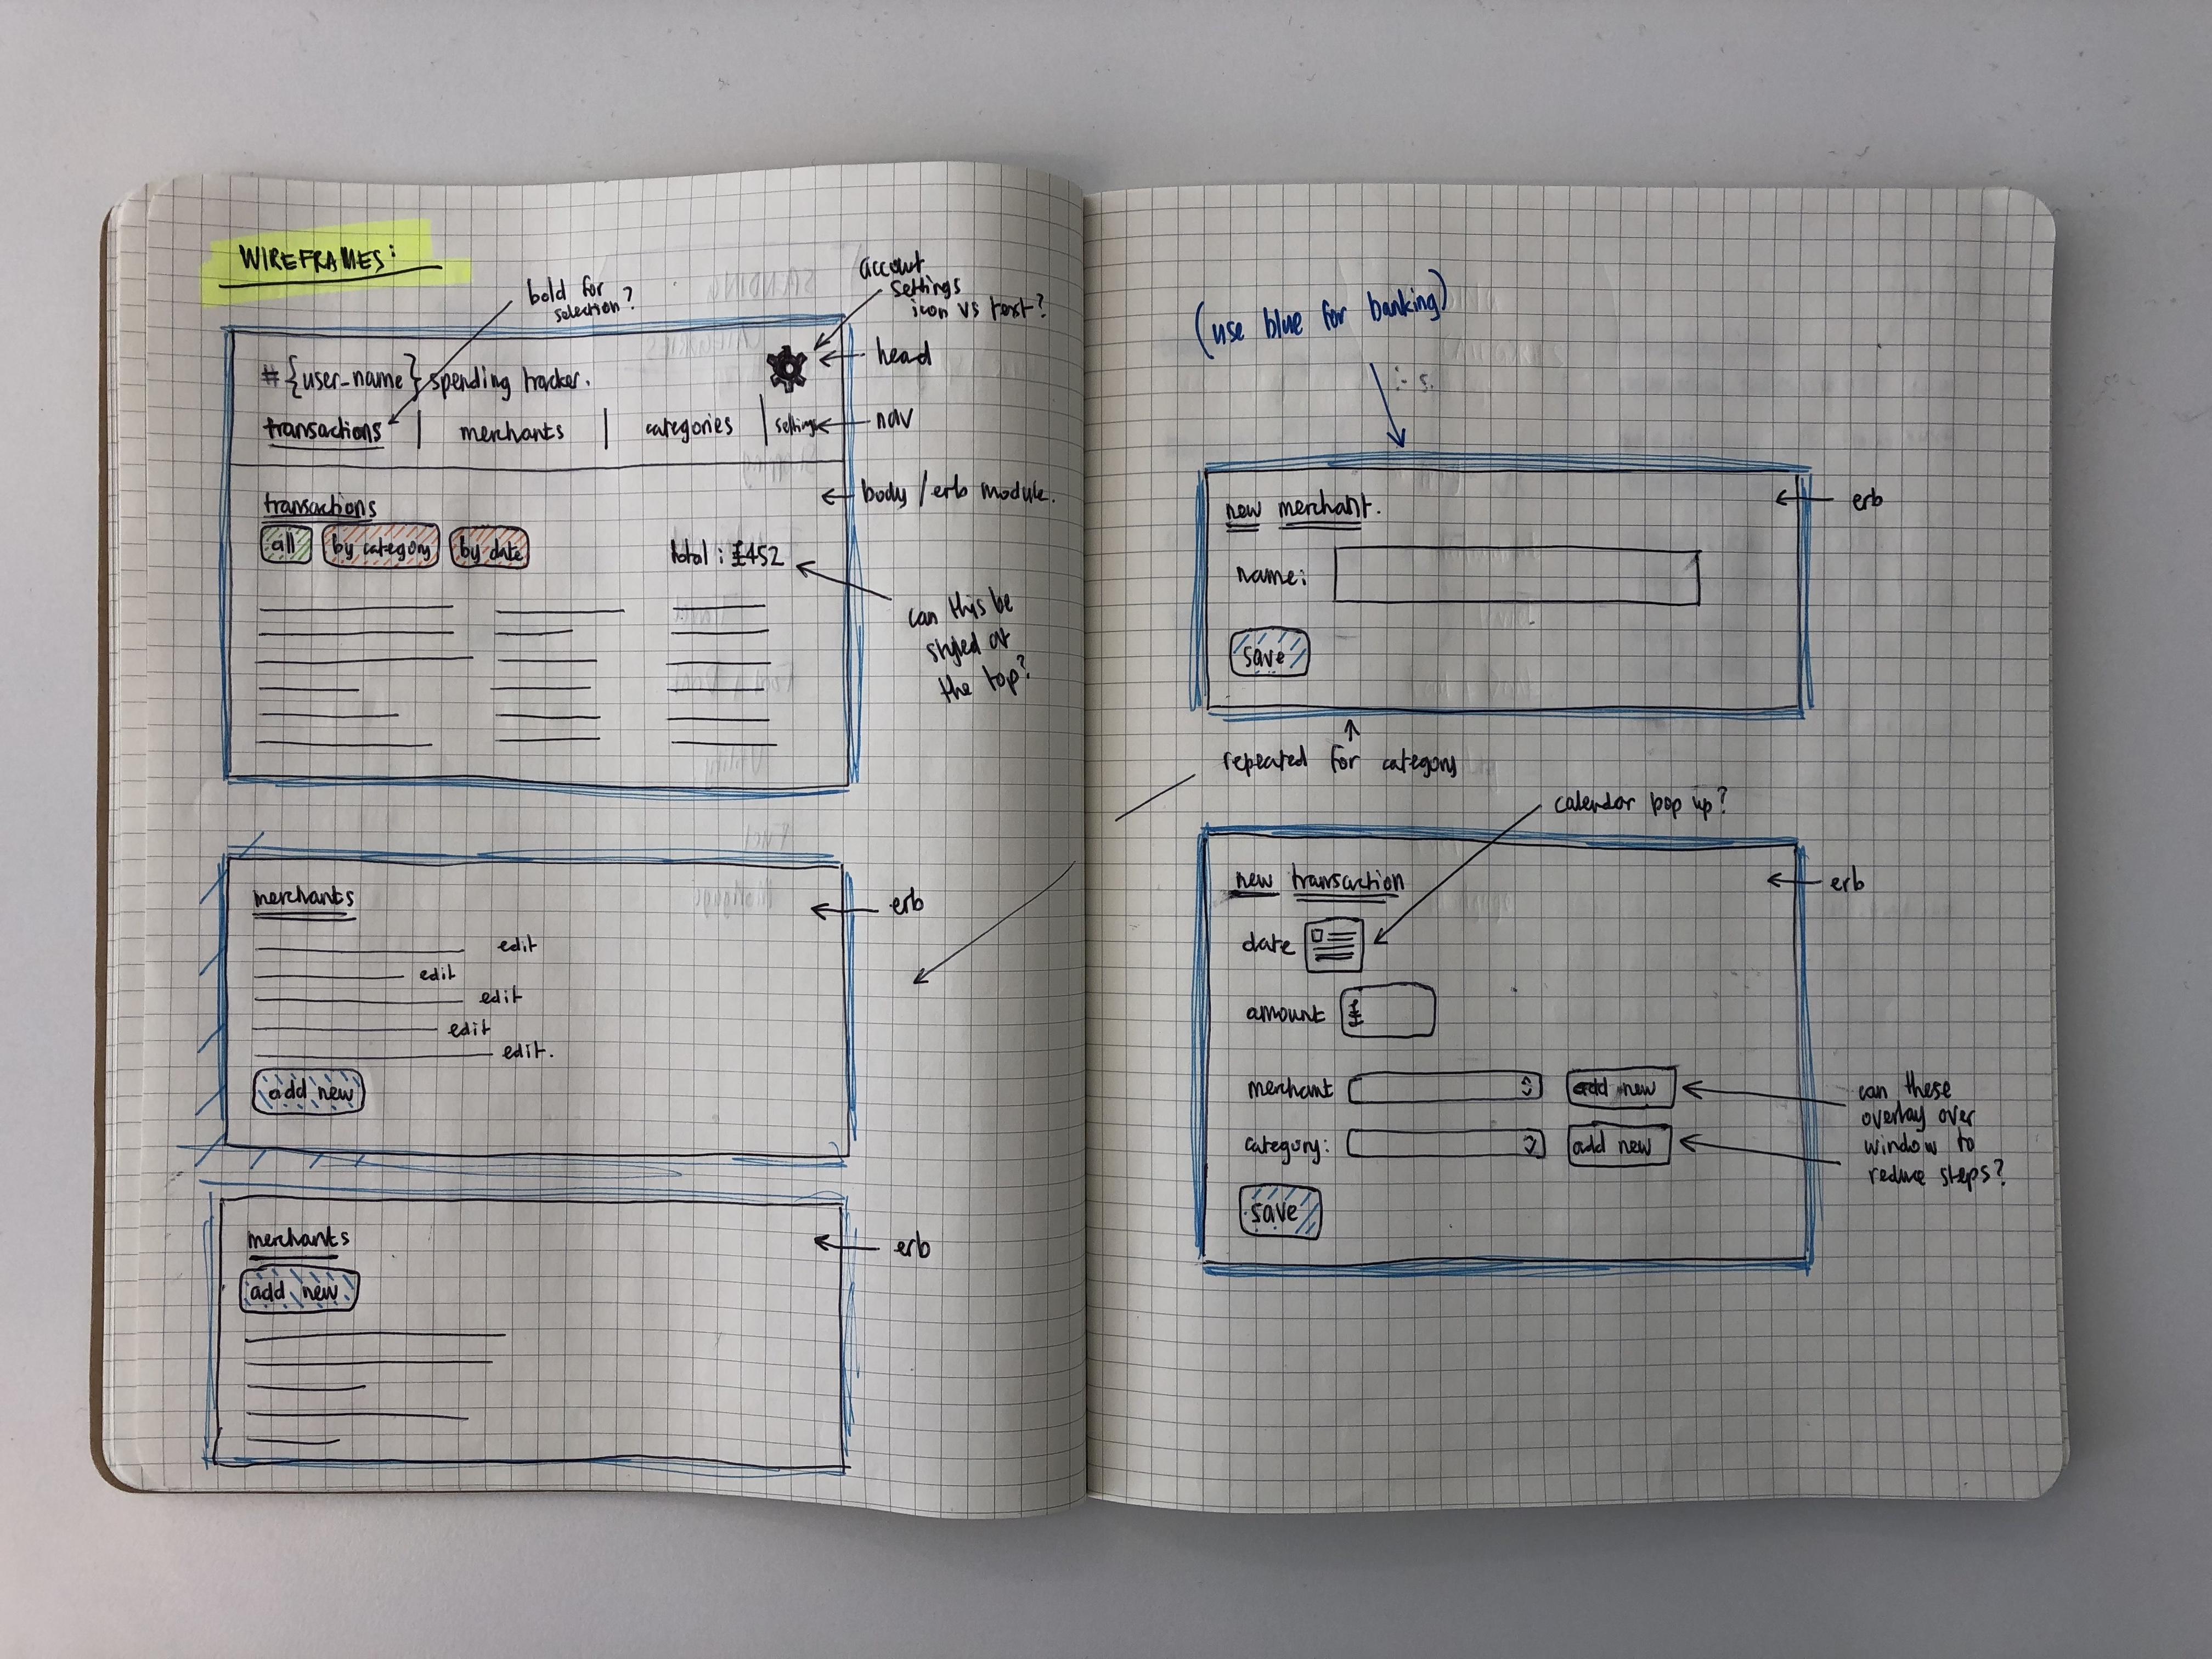 WIREFRAMES:
bold for
selection?
account
settings
icon vs text?
#{user_name} spending tracker.
head
transactions | merchants | categories | settings
nav
body / erb module.
transactions
all by category by date
total : £452
can this be
styled at
the top?
merchants
erb
edit
edit
edit
edit
edit.
add new
merchants
erb
add new
(use blue for banking)
new merchant.
erb
name:
save
repeated for category
calendar pop up?
new transaction
erb
date
amount £
merchant add new
category: add new
can these
overlay over
window to
reduce steps?
save